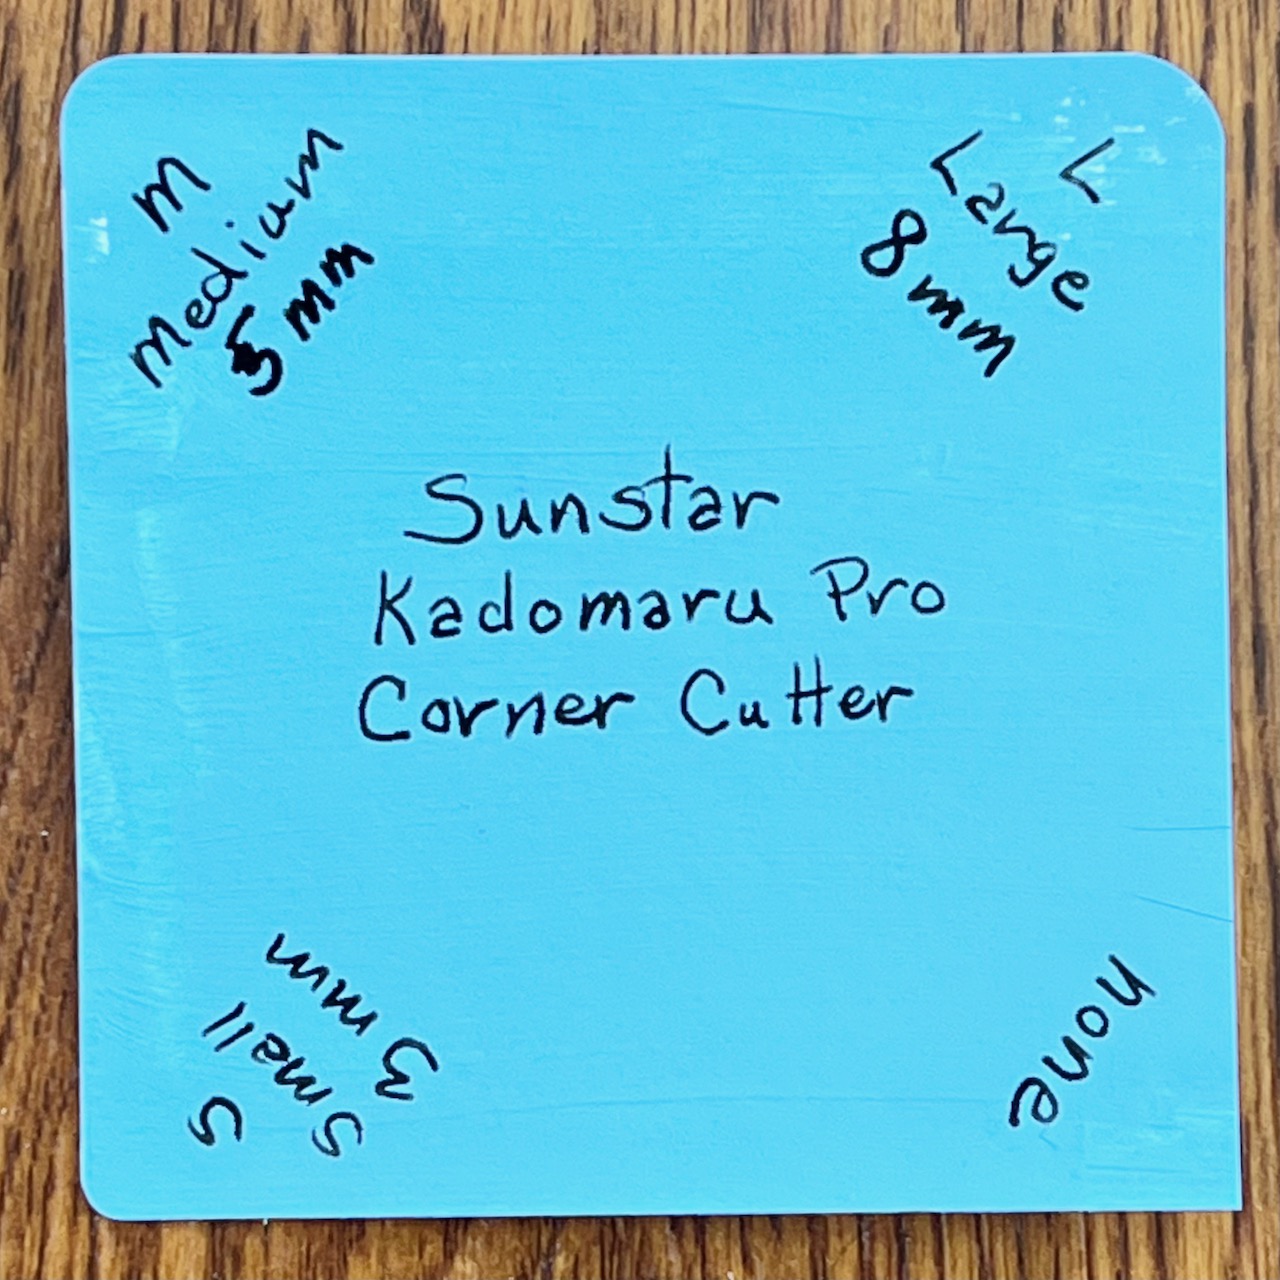 M
Medium
5 mm
L
Large
8 mm
Sunstar
Kadomaru Pro
Corner Cutter
S
Small
3 mm
none